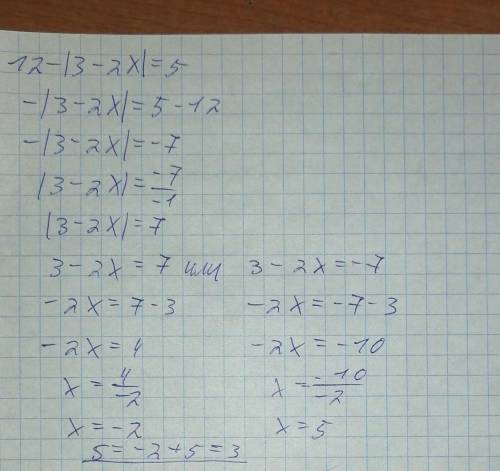 12-|3-2x|=5
-|3-2x|=5-12
-|3-2x|=-7
|3-2x|=-7/-1
|3-2x|=7
3-2x=7 или 3-2x=-7
-2x=7-3 -2x=-7-3
-2x=4 -2x=-10
x=4/-2 x=-10/-2
x=-2 x=5
5=-2+5=3